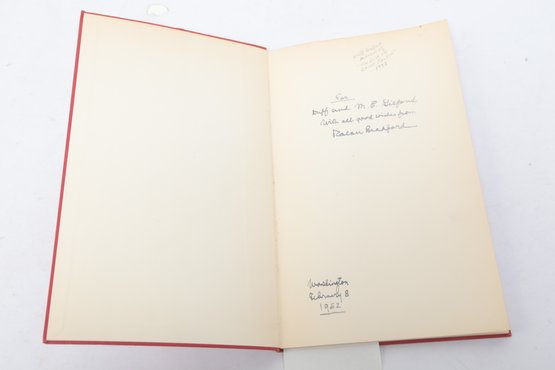 For
Duff and M. E. Gilfond
With all good wishes from
Ralph Bradford
Washington
February 8
1952